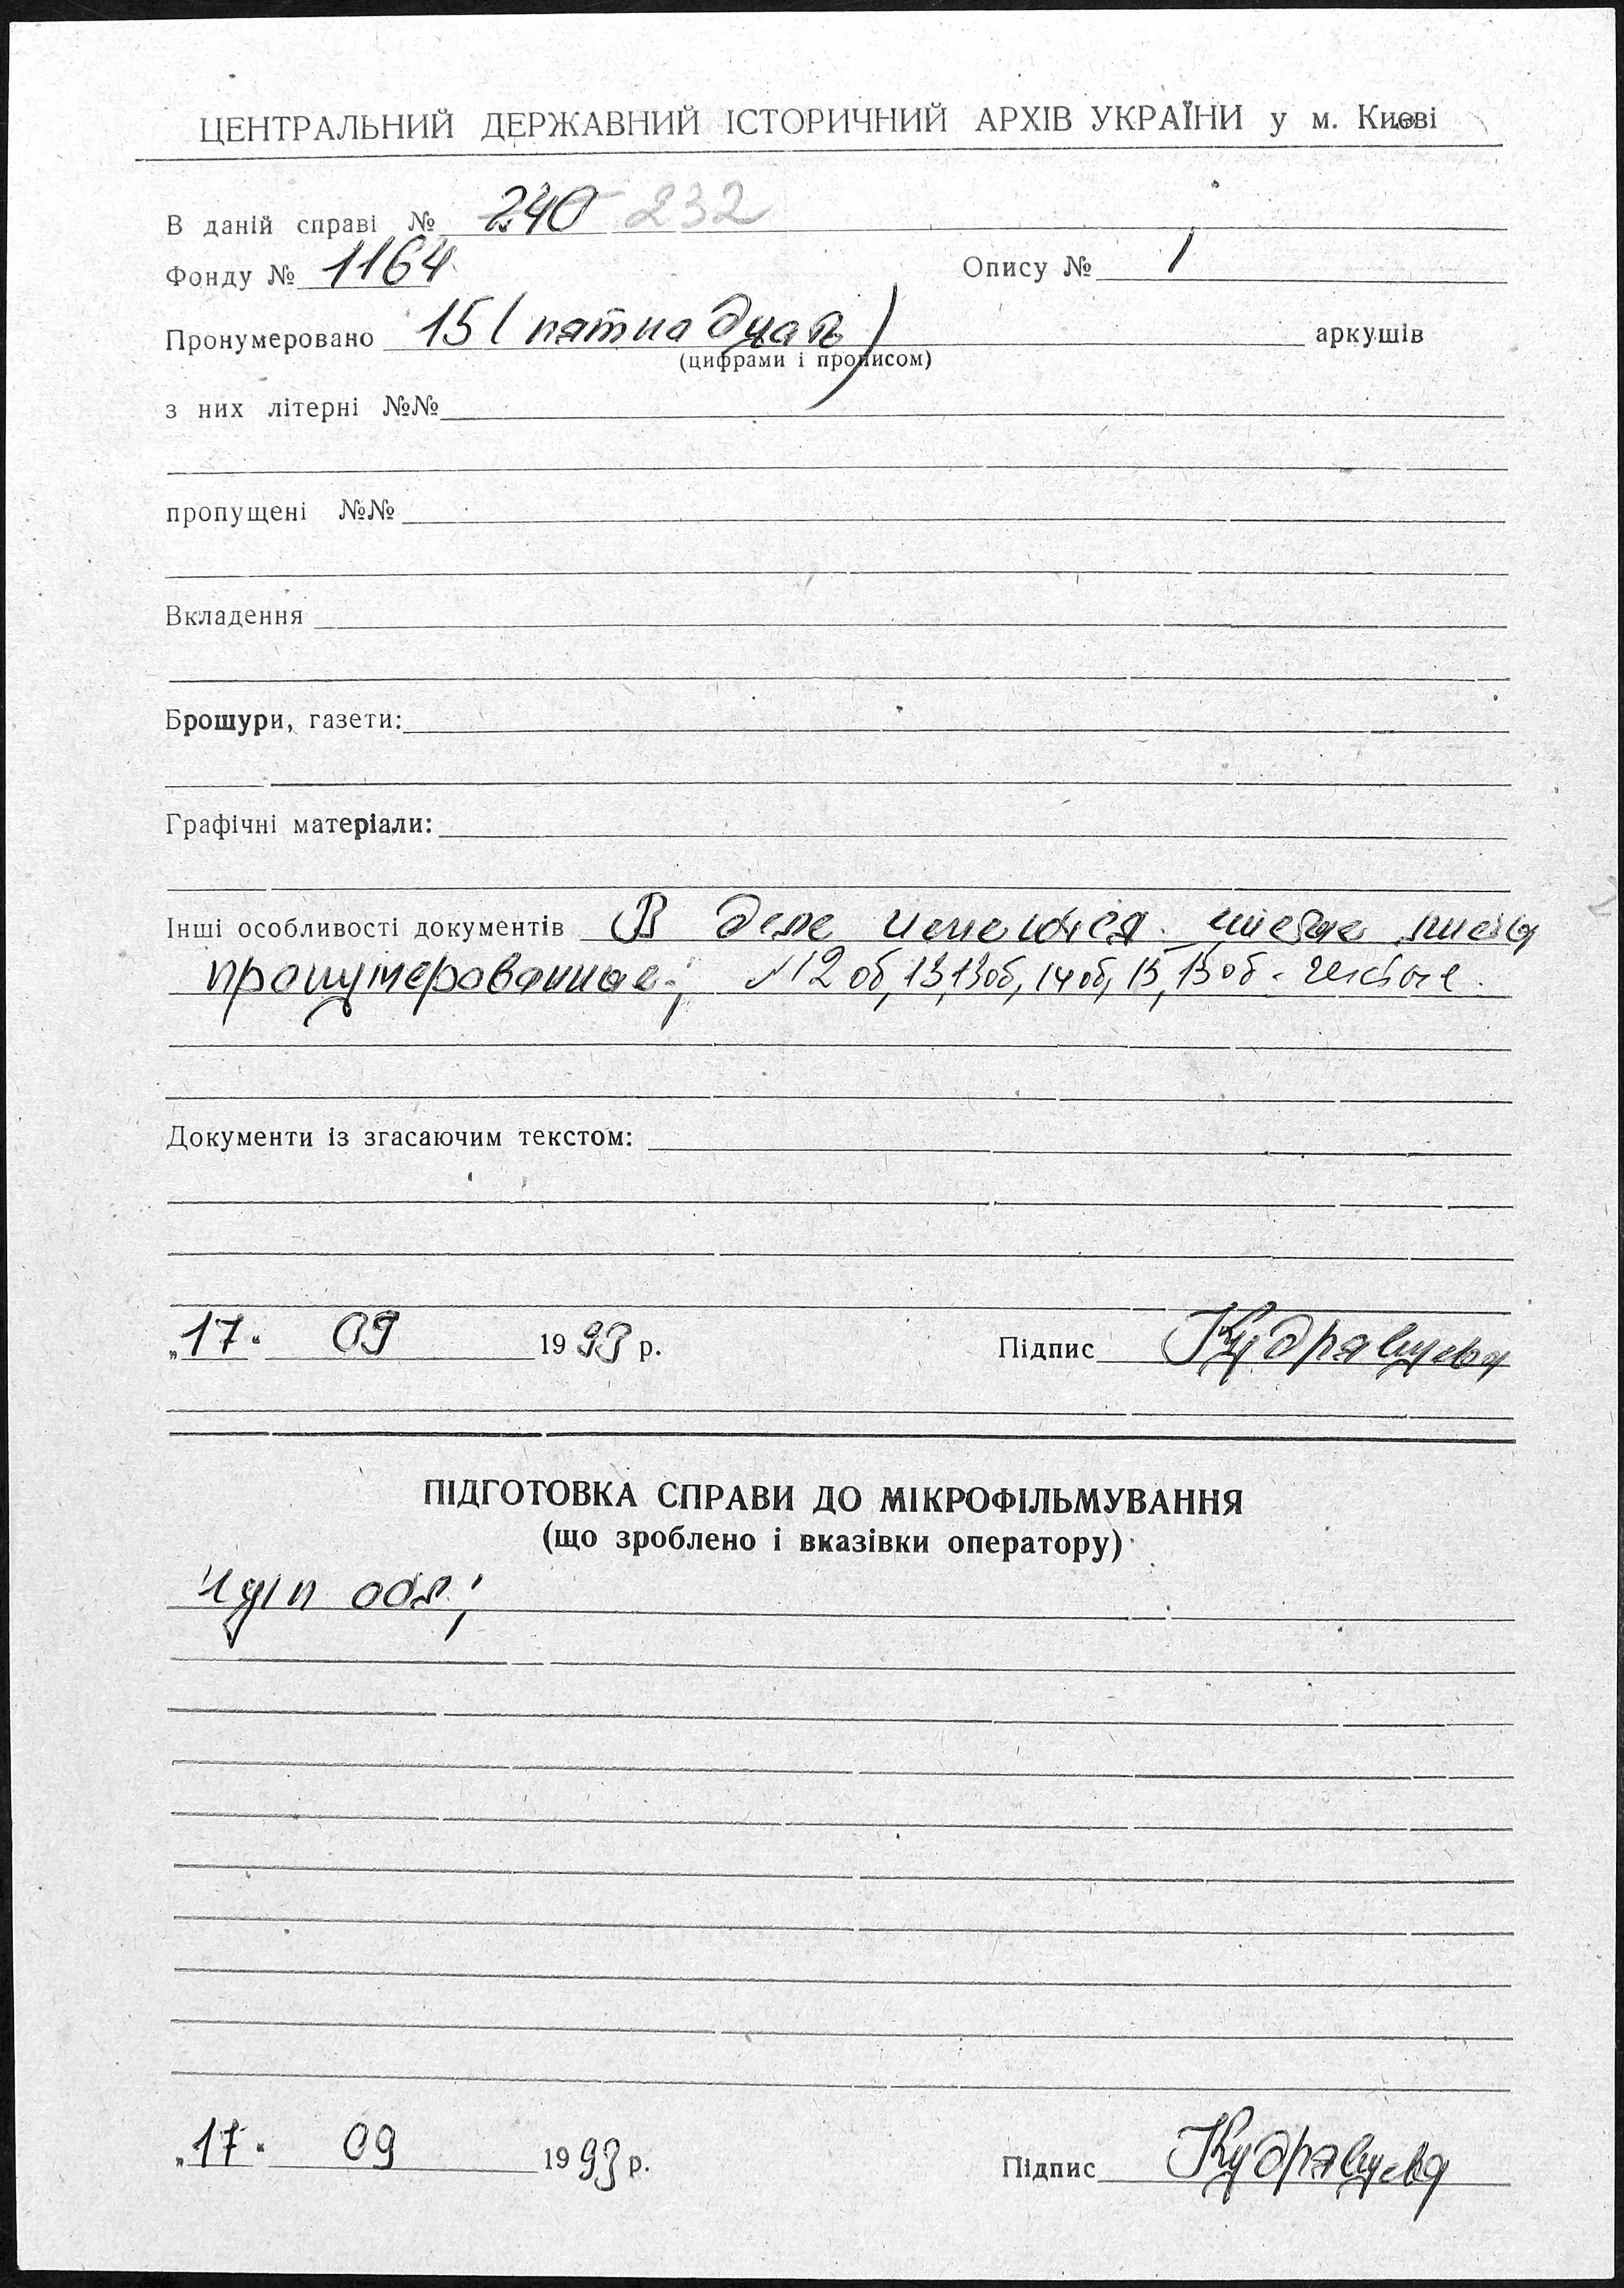 ЦЕНТРАЛЬНИЙ ДЕРЖАВНИЙ ІСТОРИЧНИЙ АРХІВ УКРАЇНИ у м. Києві
В даній справі № 240 232
Фонду № 1164 Опису № 1
Пронумеровано 15 (пятнадцать) аркушів
(цифрами і прописом)
з них літерні №№
пропущені №№
Вкладення
Брошури, газети:
Графічні матеріали:
Інші особливості документів В деле имеются чистые листы
пронумерованные; 12 об, 13, 13 об, 14 об, 15, 15 об - чистые.
Документи із згасаючим текстом:
„17" 09 1993 р. Підпис Кудрявцева
ПІДГОТОВКА СПРАВИ ДО МІКРОФІЛЬМУВАННЯ
(що зроблено і вказівки оператору)
„17" 09 1993 р. Підпис Кудрявцева